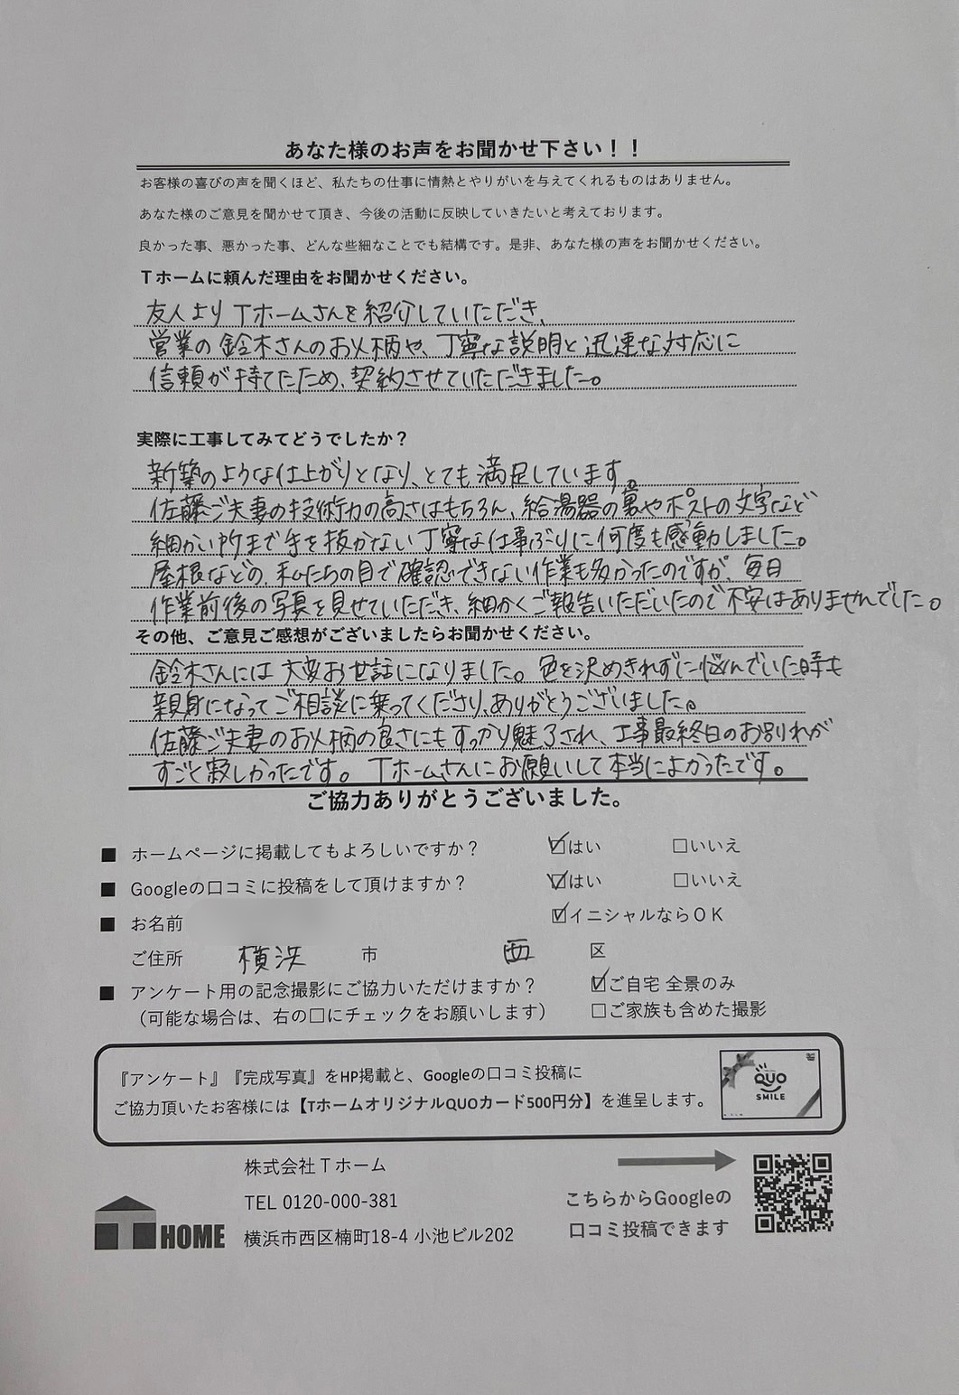 あなた様のお声をお聞かせ下さい！！
お客様の喜びの声を聞くほど、私たちの仕事に情熱とやりがいを与えてくれるものはありません。
あなた様のご意見を聞かせて頂き、今後の活動に反映していきたいと考えております。
良かった事、悪かった事、どんな些細なことでも結構です。是非、あなた様の声をお聞かせください。
Ｔホームに頼んだ理由をお聞かせください。
友人よりTホームさんを紹介していただき、
営業の鈴木さんのお人柄や、丁寧な説明と迅速な対応に
信頼が持てたため、契約させていただきました。
実際に工事してみてどうでしたか？
新築のような仕上がりとなり、とても満足しています。
佐藤ご夫妻の技術力の高さはもちろん、給湯器の裏やポストの文字など
細かい所まで手を抜かない丁寧な仕事ぶりに何度も感動しました。
屋根などの、私たちの目で確認できない作業も多かったのですが、毎日
作業前後の写真を見せていただき、細かくご報告いただいたので不安はありませんでした。
その他、ご意見ご感想がございましたらお聞かせください。
鈴木さんには大変お世話になりました。色を決めきれずに悩んでいた時も
親身になってご相談に乗ってくださり、ありがとうございました。
佐藤ご夫妻のお人柄の良さにもすっかり魅了され、工事最終日のお別れが
すごく寂しかったです。Tホームさんにお願いして本当によかったです。
ご協力ありがとうございました。
■ ホームページに掲載してもよろしいですか？ ☑はい □いいえ
■ Googleの口コミに投稿をして頂けますか？ ☑はい □いいえ
■ お名前 ☑イニシャルならＯＫ
ご住所 横浜 市 西 区
■ アンケート用の記念撮影にご協力いただけますか？ ☑ご自宅 全景のみ
（可能な場合は、右の□にチェックをお願いします） □ご家族も含めた撮影
『アンケート』『完成写真』をHP掲載と、Googleの口コミ投稿に
ご協力頂いたお客様には【TホームオリジナルQUOカード500円分】を進呈します。
QUO
SMILE
株式会社Ｔホーム
TEL 0120-000-381
横浜市西区楠町18-4 小池ビル202
T HOME
こちらからGoogleの
口コミ投稿できます